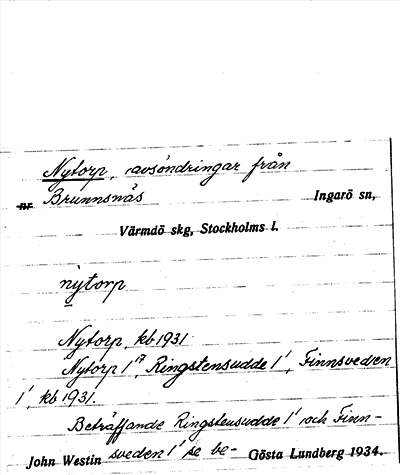 Nytorp, avsöndringar från
nr Brunnsnäs Ingarö sn,
Värmdö skg, Stockholms l.
nytorp
Nytorp, kb 1931
Nytorp 1¹⁷, Ringstensudde 1¹, Finnsveden
1¹, kb 1931.
Beträffande Ringstensudde 1¹ och Finn-
sveden 1¹ se be-
John Westin Gösta Lundberg 1934.